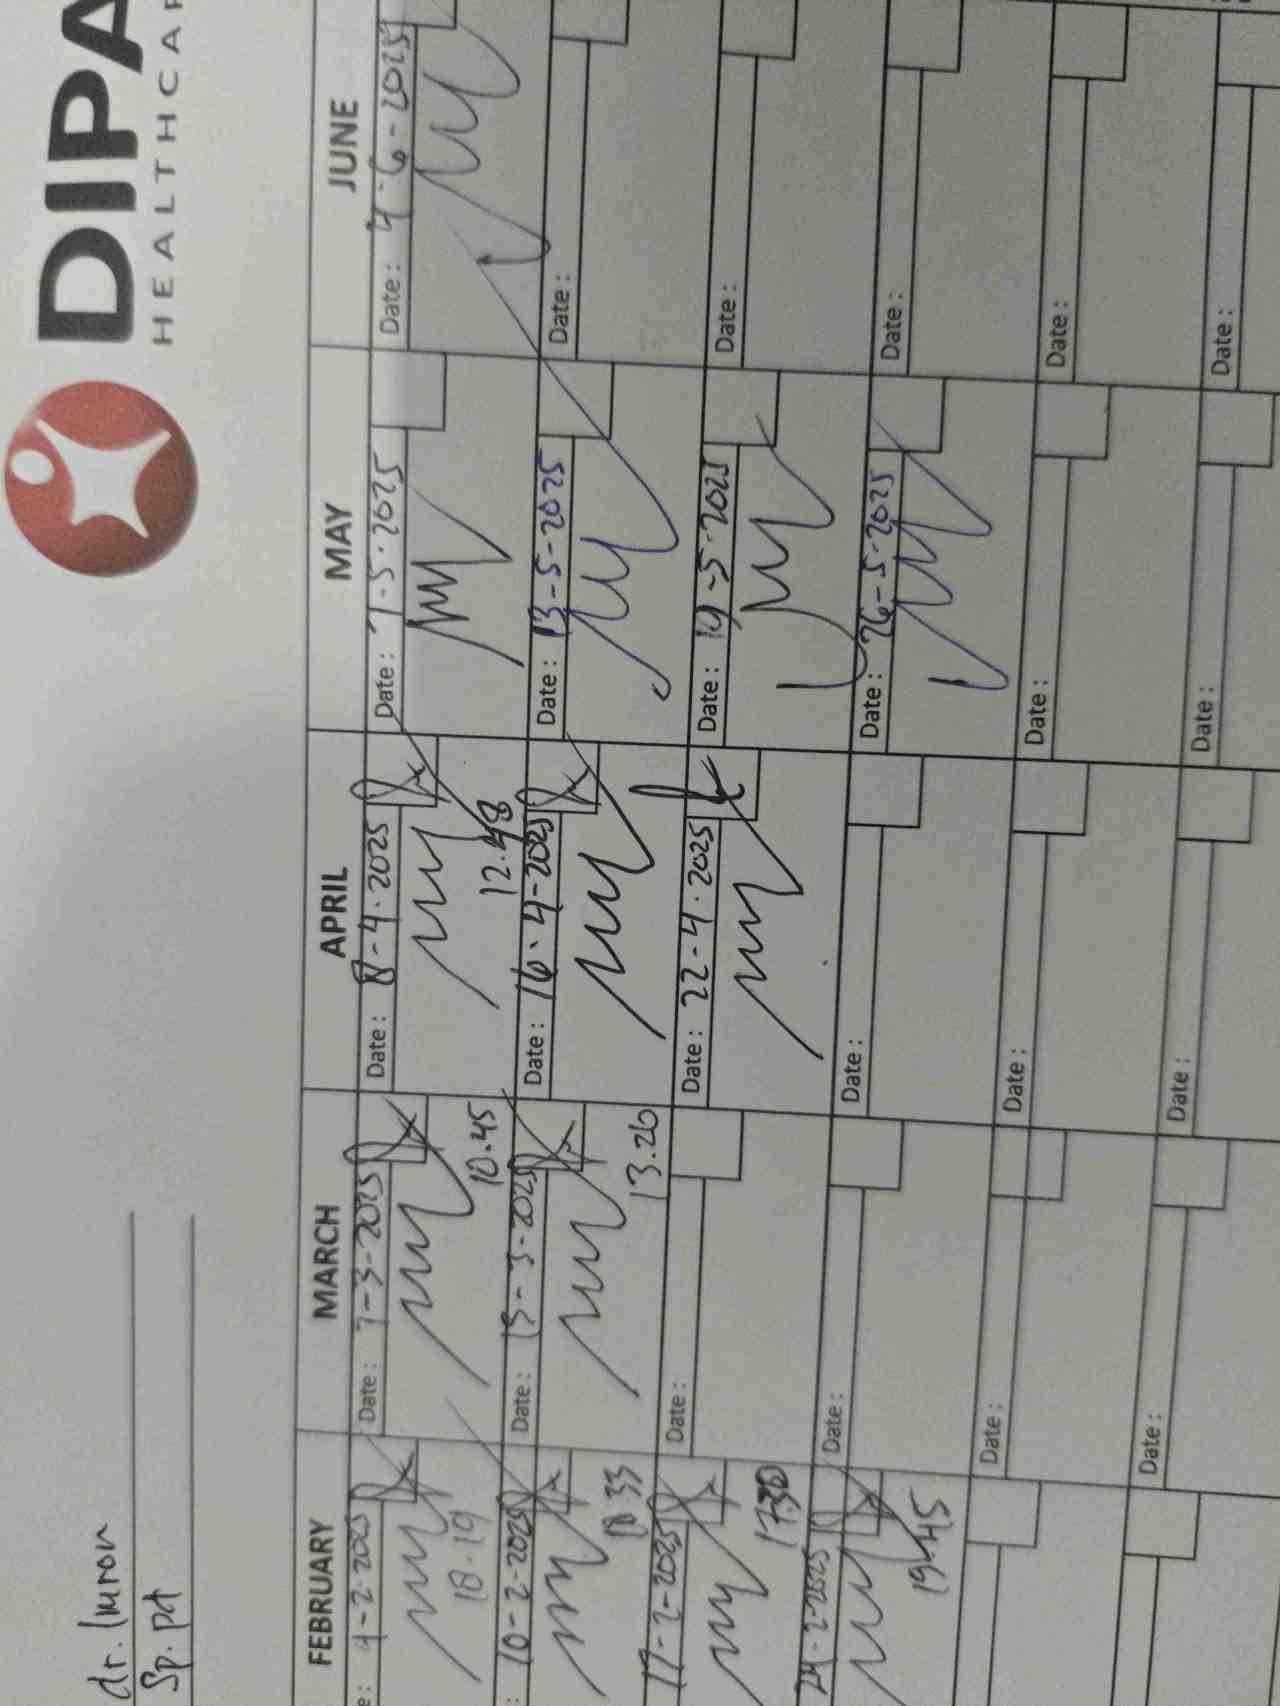 DIPA
HEALTHCAR
dr. Imron
Sp. pd
FEBRUARY MARCH APRIL MAY JUNE
e: 4-2-2025 Date: 7-3-2025 Date: 8-4-2025 Date: 7-5-2025 Date: 4-6-2025
18.19 10.45 12.48
: 10-2-2025 Date: 13-3-2025 Date: 16-4-2025 Date: 13-5-2025 Date:
18.33 13.20
17-2-2025 Date: Date: 22-4-2025 Date: 19-5-2025 Date:
17.30
24-2-2025 Date: Date: Date: 26-5-2025 Date:
19.45
Date: Date: Date: Date:
Date: Date: Date: Date: